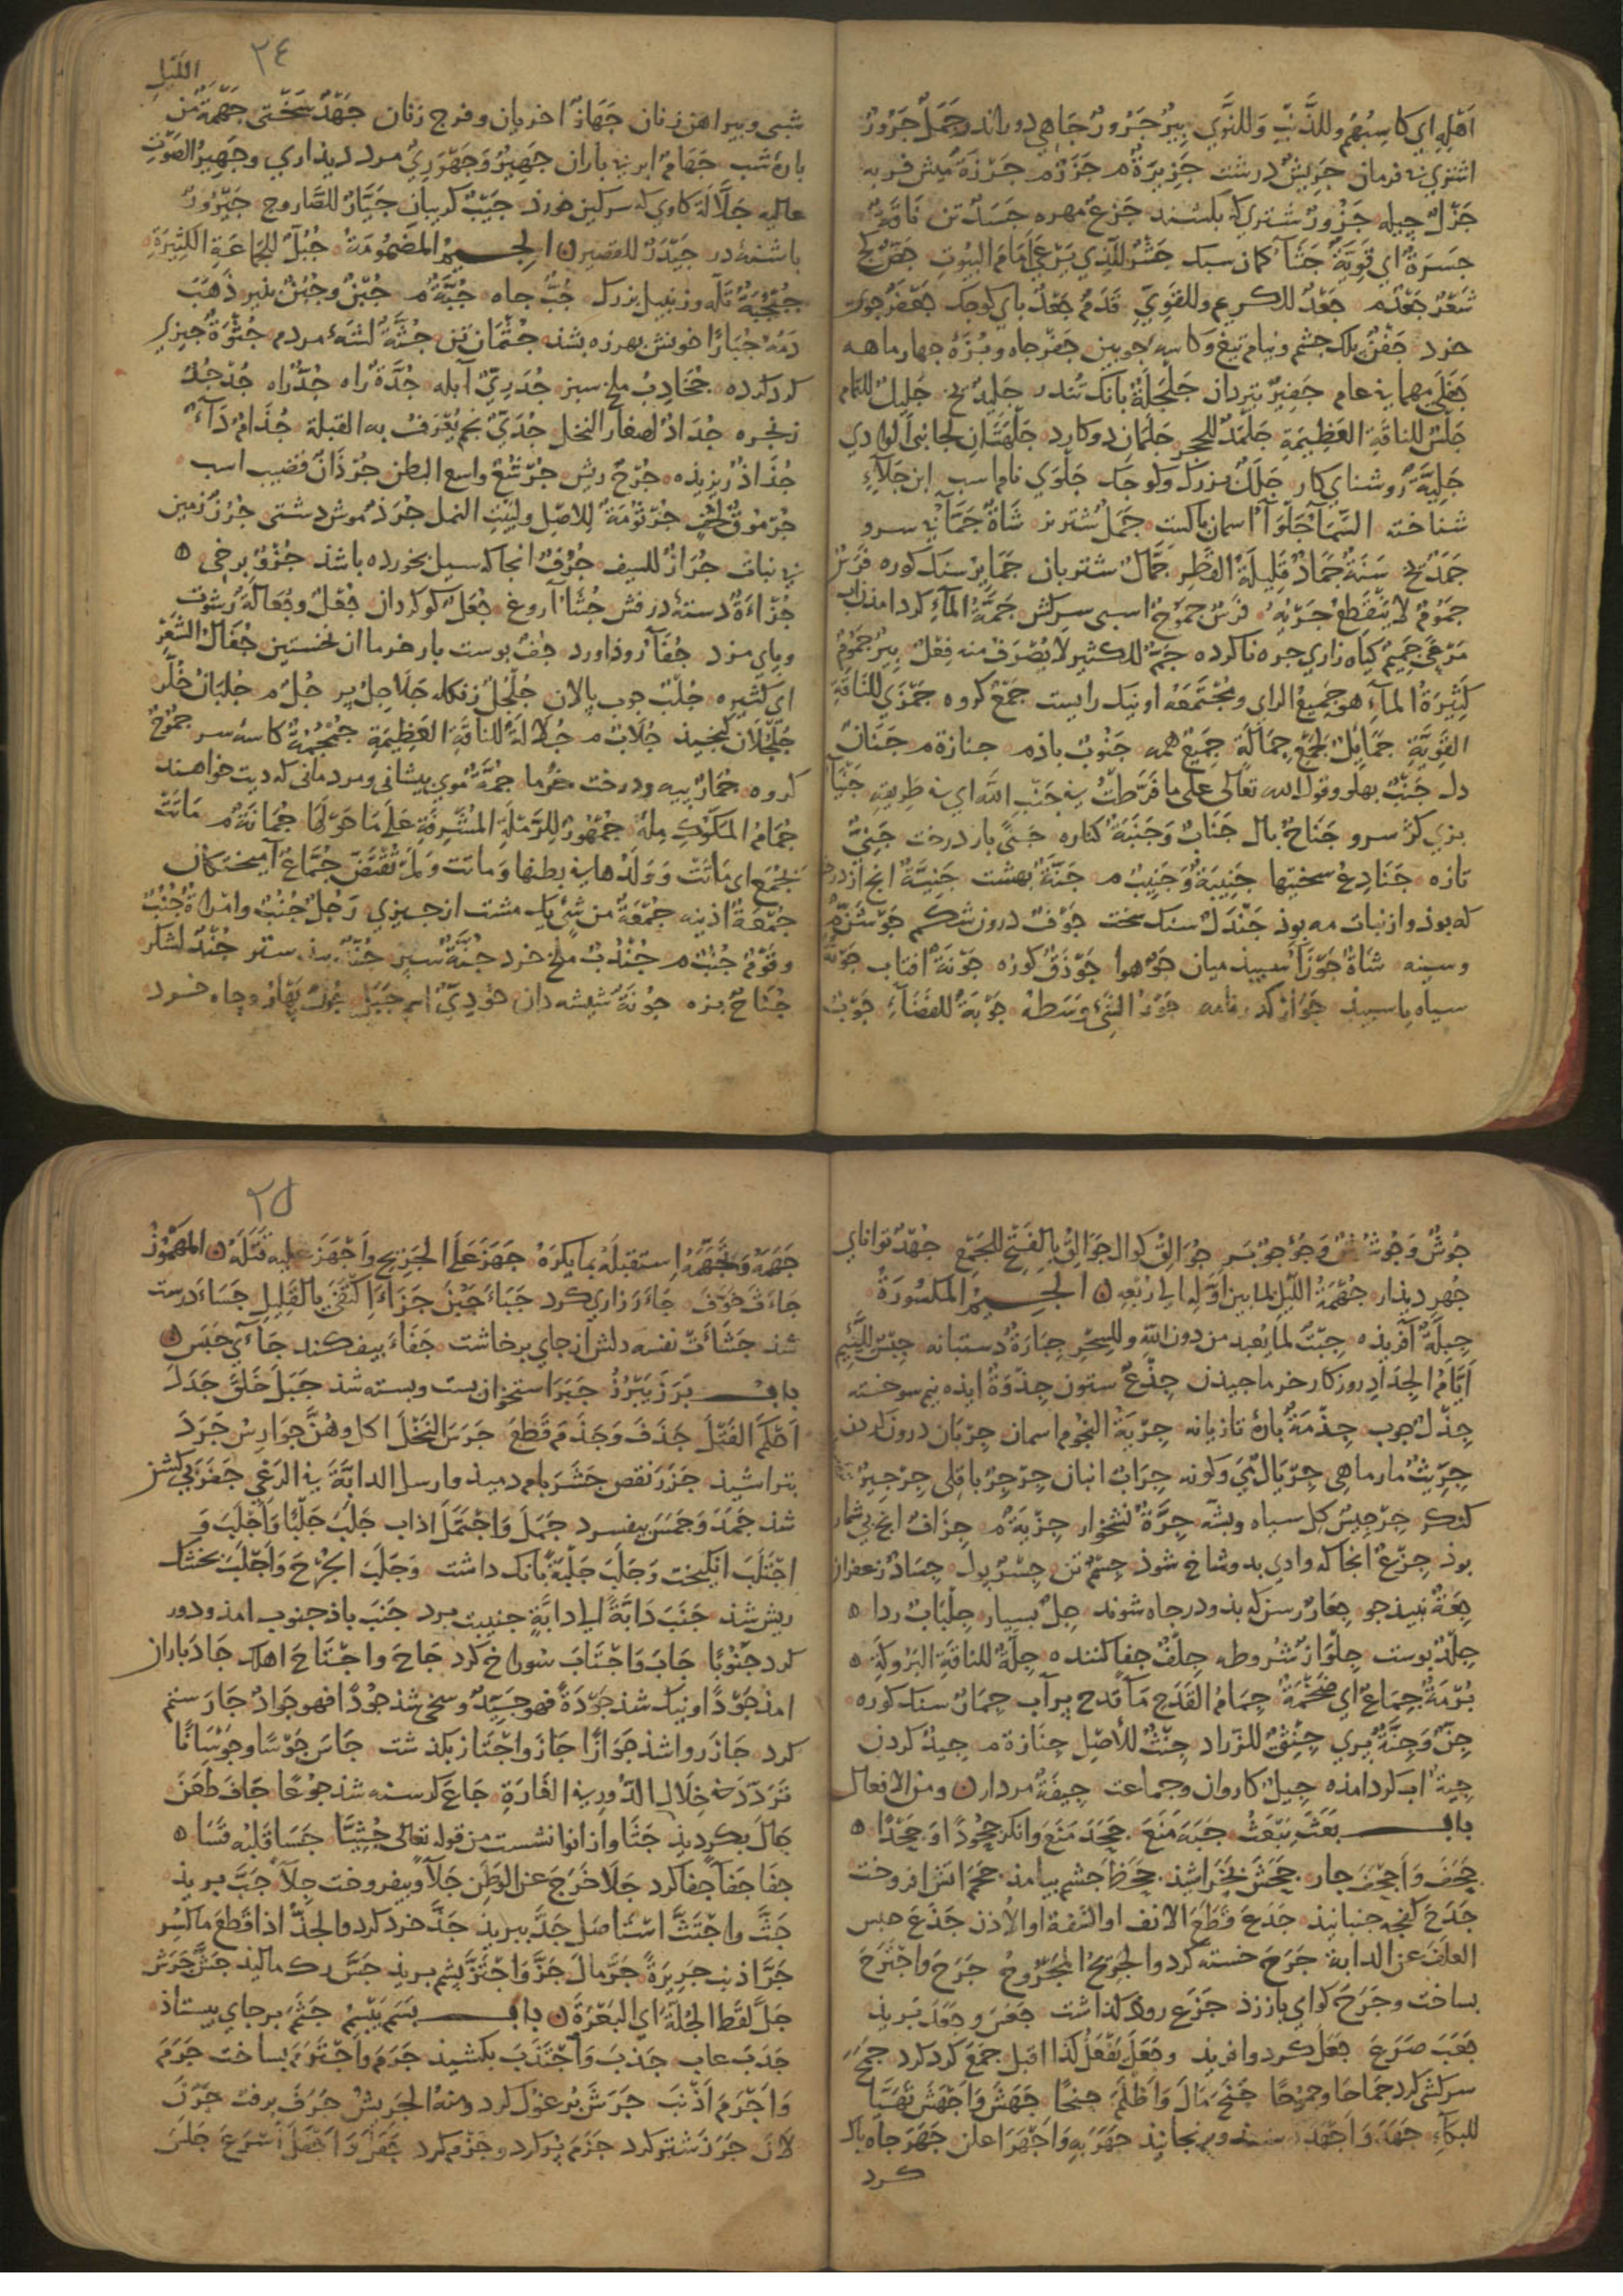 اَهْلِهِ اي كَاسِبُهُم وللذَّنبِ وَللنَّوَي بِيرٌ جَرُورٌ جَاهي دور اندر جَمَلٌ جَرُورٌ
اشتري نه فرمان جَرِيشٌ درشت جَزِيرَةٌ م جَزَرٌ م جَزَرَةٌ ميش فربه
جَزْلٌ جَزُورٌ شتري كه بكشند جَزْعٌ مهره جَسَدٌ تن نَاقَةٌ
جَسرَةٌ اي قَوِيَّةٌ جَشْأ كمان سبك جَشْرٌ للَّذِي يَرْعَي اَمَامَ البُيُوتِ جَصٌّ كج
شَعْرٌ جَعْدٌ م جَعْدٌ للكريم وللقَوِيِّ قَدَمٌ جَعْدٌ باي كوجك جَعْفَرٌ جوي
خرد جَفْنٌ بلك جشم ونيام تيغ وكاسه جوبين جَفْرٌ جاه وبُزْهُ جهار ماهه
جَفَلَي مهماني عام جَفِيرٌ تيردان جَلْجَلَةٌ بانك تندر جَلِيدٌ يخ جَلِيلٌ للثمام
جَلْسٌ للناقَةِ العَظِيمَةِ جَلْمَدٌ للحجر جَلَمَانِ دو كارد جَلْهَتَانِ لجانبي الوادي
جَلِيَّةٌ روشناي كار جَلَلٌ بزرك وكوجك جَلْوَي نام اسب ابن جَلَآءِ
شناخته السَّمَآ جَلْوَآ اسمان باكست جَمَلٌ شتر نر شَاةٌ جَمَّآ بي سرو
جَمَدٌ يخ سَنَةٌ جَمَادٌ قَلِيلَةُ القَطْرِ جَمَّالٌ شتربان جَمَايِرُ سنك كوره فَرَسٌ
جَمُومٌ لا يَنْقَطِعُ جَرْيُهُ فَرَسٌ جَمُوحٌ اسبي سركش جَمَّةُ المَآءِ كرد امدن اب
مَرْعًي جَمِيمٌ كياه زاري جره ناكرده جَمٌّ للكثير لا يُصَرَّفُ منه فِعْلٌ بِيرٌ جَمُومٌ
كَثِيرَةُ المَآءِ هو جَمِيعُ الراي ومُجْتَمَعُه او نيك رايست جَمْعٌ كروه جَمَزَي للنَّاقَةِ
القَوِيَّةِ جَمَايِلُ لجَمْعِ جِمَالَةٍ جَمِيعٌ همه جَنُوبٌ باذ م جنازة م جَنَانٌ
دل جَنْبٌ بهلو وقول الله تعالى على ما فَرَّطتُ في جَنْبِ اللّه اي في طَرِيقِهِ جَنْآ
بزي كژ سرو جَنَاحٌ بال جَنَابٌ وَجَنَبَةٌ كناره جَنًي بار درخت جَنِيٌّ
تازه جَنَادِعُ سختيها جَنِيبَةٌ وَجَنِيبٌ م جَنَّةٌ بهشت جَنِيَّةٌ انج از درخت
كه بوذ واز نبات مه بوذ جَنْدَلٌ سنك سخت جَوْفٌ درون شكم جَوْشَنٌ م
وسينه شَاةٌ جَوْزَآ سبيذ ميان جَوٌّ هوا جَوْذَقٌ كوزه جَوْنَةٌ افتاب جَوْنٌ
سياه يا سبيذ جَوَازٌ كذرنامه جَوْزُ الشَّئ وَسَطُهُ جَوْبَةٌ للفَضَآءِ جَوْبٌ
٢٤
اللَّيلِ
شبي وبيراهن زنان جَهَازٌ اخريان وفرج زنان جَهْدٌ سَخْتي جَهْمَةٌ من
باره شب جَهَامٌ ابر بي باران جَهِيرٌ وَجَهْوَرِيٌّ مرد ديداري وجَهِيرُ الصَوْتِ
عاليه جَلَّالَةٌ كاوي كه سركين خورذ جَيْبٌ كريبان جَيَّارٌ للصَّاروج
باشنه در جَيْدَرٌ للقصير ن الجيم المَضمُومَةُ جُبُلٌ للجَمَاعَةِ الكَثِيرَةِ
جُبْجُبَةٌ تله وزنبيل بزرك جُبٌّ جاه جُبَّةٌ م جُبْنٌ وجُبُنٌّ بنير ذَهَبَ
دَمُهُ جُبَارًا خونش بهرزه بشذ جُثْمَانٌ تن جُثَّةٌ لشهٔ مردم جُثْوَةٌ جيزي
كرد كرده جُخَادِبٌ ملخ سبز جُدَرِيٌّ آبله جُدَّةٌ راه جُدٌّ راه جُدْجُدٌ
زنجره جُدَادٌ لصغار النخل جُدَيٌّ نجم يُعْرَفُ به القبلة جُذَامٌ دَآءٌ
جُذَاذٌ ريزيذه جُرْحٌ ريش جُرْشُعٌ واسع البطن جُرْذَانٌ قضيب اسب
جُرْمُوقٌ لخف جُرْثُومَةٌ لِلاصْلِ ولبَيْتِ النمل جُرَذٌ موش دشتي جُرُزٌ زمين
بي نبات جُرَازٌ للسيف جُرْفٌ انجا كه سيل بخورده باشذ جُزْؤٌ برخي ٥
جُزْاءَةٌ دسته درفش جُشَآ آروغ جُعَلٌ كوكردان جُعْلٌ وجُعَالَةٌ رشوت
وباي مزد جُفَآ روذ اورد جُفٌّ بوست بار خرما ان نخستين جُفَالُ الشَعْرِ
اي كثيره جُلْبٌ جوب بالان جُلْجُلٌ زنكله جُلَاجِلٌ بر جُلٌّ م جُلبَانٌ خُلَّر
جُلْجُلَانٌ كنجيذ جُلَابٌ م جُلَالَةٌ للنَّاقَةِ العَظِيمَةِ جُمْجُمَةٌ كاسه سر
كروه جُمَّارٌ بيه ودرخت خرما جُمَّةٌ موي بيشاني ومردماني كه ديت خواهند
جُمَامُ المَكُّوكِ مِلؤهُ جُمْهُورٌ للرَّمْلَةِ المُشْرِفَةِ عَلَي مَا حَوْلَهَا جُمَانَةٌ م مَاتَتْ
بجُمْعٍ اي مَاتَتْ وَوَلَدُها في بطنها وَماتت وَلَم تُقْتَضّ جُمَّاعٌ آميختكان
جُمْعَةٌ اذينه جُمْعَةٌ من شَئٍ يك مشت از جيزي رَجُلٌ جُنُبٌ وامْرَاةٌ جُنُبٌ
وقَوْمٌ جُنُبٌ م جُنْدُبٌ ملخ خرد جُنَّةٌ سبر جُنْدٌ لشكر
جُنَاحٌ بزه جُونَةٌ شيشه دان جُودِيٌّ اسم جَبَلٍ
جُوشٌ وَجُوشُوشٌ وَجُؤجُؤٌ بَرِ جُوَالِقٌ كوال جَوَالِقُ بِالفَتْحِ للجَمْع جُهْدٌ تواناي
جُهْر ديذار جُهْمَةُ اللَّيْلِ لما بين اوَّلِهِ الي رُبْعِهِ ن الجيم المكسُورَةُ
جِبِلَّةٌ آفريذه جِبْتٌ لما يُعبد من دون اللّهِ وللسِّحْرِ جِبَارَةٌ دستبانه جِبْسٌ للَّئِيم
اَيَّامُ الجِدَادِ روزكار خرما جيذن جِذْعٌ ستون جِذْوَةٌ ايذه نيم سوخته
جِذْلٌ جوب جِذْمَةٌ بارهٔ تازيانه جِرْبَةُ النجُوم اسمان جِرّبَان
جِرِّيثٌ مار ماهي جِرْيَالٌ مي وكونه جِرَابٌ انبان جِرْجِرٌ باقلي جِرْجِيرٌ
كنكر جِرْجِسٌ كل سياه وبشه جِرَّةٌ نشخوار جِزْيَةٌ م جِزَافٌ انج بي شمار
بوذ جِزْعٌ انجا كه وادي بدو شاخ شوذ جِسْمٌ تن جِسْرٌ بول جِسَادٌ زعفران
جِعَةٌ نبيذ جو جِعَارٌ رسن كه بذو در جاه شوند جِلٌّ بسيار جِلْبَابٌ ردا ٥
جِلْدٌ بوست جِلْوَازٌ شُروطه جِلْفٌ جفا كننده جِلَّةٌ للنَاقَةِ البَزُولَةِ ٥
بُرْمَةٌ جِمَاعٌ اي ضَخْمَةٌ جِمَامُ القَدَحِ مَآ قدح بر آب جِمَارٌ سنك كوره
جِنٌّ وَجِنَّةٌ بري جِنْثِيٌّ للزَّراد جِنْثٌ لِلْأصْلِ جِنَازة م جِيدٌ كردن
جِيَةٌ اب كرد امذه جِيلٌ كاروان وجماعت جِيفَةٌ مردار ن ومن الافعال
باب بَعَثَ يَبْعَثُ جَبَهَ مَنَعَ جَحَدَ مَنَعَ وانكَرَ جُحُودًا وَ جَحْدًا ٥
جَحَفَ وَاَجْحَفَ جار جَحَشَ بخراشيذ جَحَظَ جشم بيامذ جَحَمَ اتش افروخت
جَدَحَ كنجه جنبانيذ جَدَعَ قَطَعَ الانف او الشفة او الأذن جَذَعَ حبس
العَلَفَ عن الدابة جَرَحَ خسته كرد والجَرِيحُ المجرُوحُ جَرَحَ واجْتَرَحَ
بساخت وجَرَحَ كواي باز زذ جَزَعَ روذ كذاشت جَعَسَ وجَعَلَ بُريذ
جَعَبَ صَرَعَ جَعَلَ كرد وافريذ وجَعَلَ يَفْعَلُ كذا اقبل جَمَعَ كرد كرد جَمَحَ
سركشي كرد جِمَاحًا وجُمُوحًا جَنَحَ مَالَ وَاظْلَمَ جنحًا جَهَشَ وَاَجْهَشَ تَهَيَّا
للبكآءِ جَهَدَ وَاَجْهَدَ ورنجانيذ جَهَرَ بِهِ وَاَجْهَرَ اعلن جَهَرَ جاه باك
كرد
٢٥
جَبَهَهُ وَتَجَهَّمَهُ استقبلَهُ بما يكرَهُ جَهَزَ عَلَي الجَرِيحِ واَجْهَزَ عليه قَتَلَهُ ن المَهْمُوزُ
جَاءَثَ خوَّفَ جَاءَرَ زاري كرد جَبَاءَ جَبُنَ جَزَاءَ اِكْتَفَي بالقَلِيلِ جَسَاءَ درست
شذ جَشَاءَتْ نفسه دلش از جاي برخاشت جَفَاءَ بيفكند جَآءَي حَبَسَ ن
باب بَرَزَ يَبْرُزُ جَبَرَ استخوان ببست وبسته شذ جَبَلَ خَلَقَ جَدَلَ
اَحْكَمَ الفَتْلَ جَذَفَ وَجَذَمَ قَطَعَ جَرَسَ النَحْلُ اكل وهُنَّ جَوَارِسُ جَرَدَ
بتراشيذ جَزَرَ نقص جَشَرَ بام دميذ وارسل الدابَّةَ في الرَعْي جَفَرَ بي كشن
شذ جَمَدَ وَجَمَسَ بيفسرد جَمَلَ وَاجْتَمَلَ اذاب جَلَبَ جَلْبًا وَاَجْلَبَ وَ
اجْتَلَبَ انكيخت وَجَلَبَ جَلْبَةً بانك داشت وَجَلَبَ الجُرْحُ وَاَجْلَبَ بخشك
ريش شذ جَنَبَ دَابَّةً الي دابَّةٍ جنيبت برد جَنَبَ باذ جنوب امذ ودور
كرد جَنُوبًا جَابَ وَاجْتَابَ سُوراخ كرد جَاحَ واجْتَاحَ اهلك جَادَ باران
امذ جَوْدًا ونيك شذ جَوْدَةً فهو جَيِّدٌ وسخي شذ جُوْدًا فهو جَوَادٌ جَارَ ستم
كرد جَازَ روا شذ جَوَازًا جَازَ وَاجْتَازَ بكذشت جَاسَ جَوْسًا وجَوَسَانًا
تَرَدَّدَ خِلَالَ الدُّورِ في الغَارَةِ جَاعَ كرسنه شذ جُوعًا جَافَ طَعَنَ
جَالَ بكرديذ جَثَا وازانوا نشست من قوله تعالى جُثِيًّا جَسَا قَلبُه قَسَا ٥
جفَا جفَآ جفا كرد جَلَا خَرَجَ عن الوَطَنِ جَلَآ وبيفروخت جِلَآ جَبَّ بريذ
جَثَّ واجْتَثَّ اسْتَأصَلَ جَدَّ ببريذ جَذَّ خرد كرد والجَذُّ اذا قَطَعَ ما كُسِرَ
جَرَّ اذنب جَرِيرَةً جَرَّ مالَ جَزَّ وَاجْتَزَّ بشم بريذ جَسَّ رك ماليذ جَشَّ جَرَشَ
جَلَّ لَقَطَ الجُلَّةَ اي البَعْرَةَ ن باب بَسَمَ يَبْسِمُ جَثَمَ بر جاي بيستاذ
جَدَبَ عاب جَذَبَ وَاجْتَذَبَ بكشيذ جَرَمَ وَاجْتَرَمَ بساخت جَرَمَ
وَاَجْرَمَ اَذْنَبَ جَرَشَ بُرغول كرد ومنه الجَرِيشُ جَرَفَ برفت جَزَلَ
جَزَرَ شتر كرد جَزَمَ بُر كرد وجَزْم كرد جَفَلَ وَاَجْفَلَ اَسْرَعَ جَلَسَ